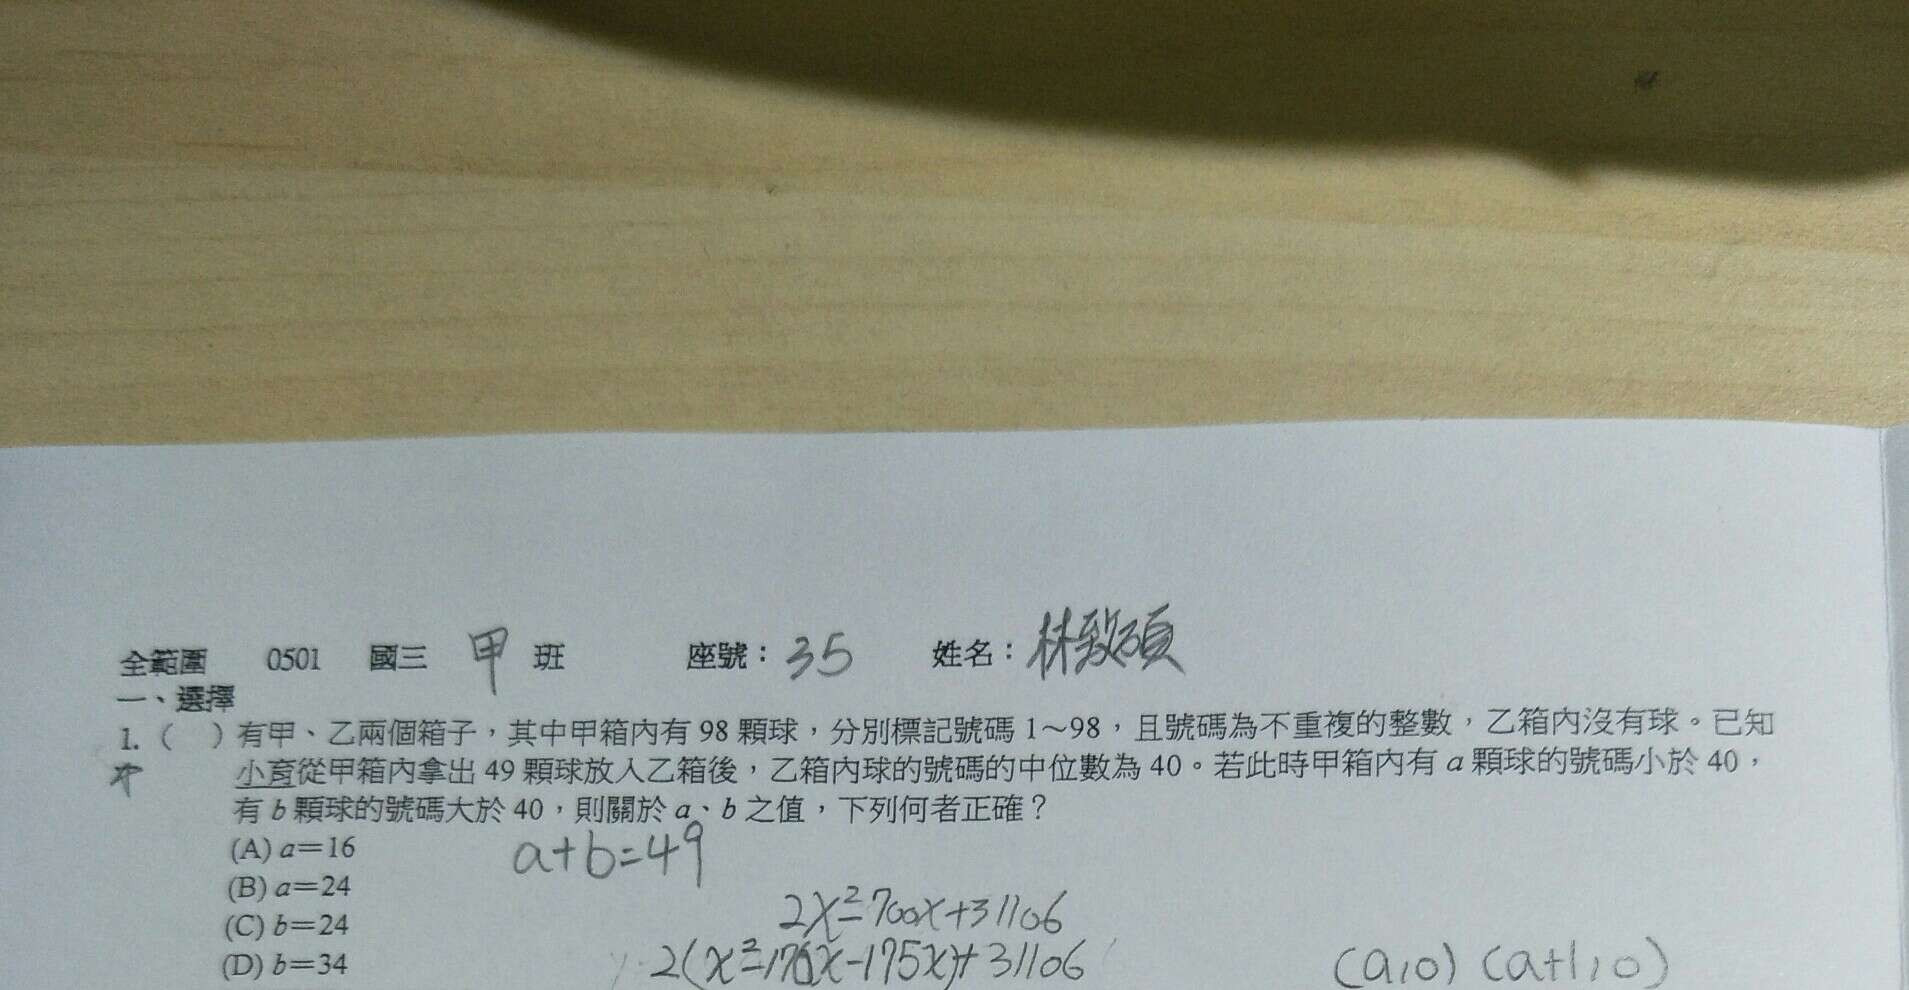 全範圍 0501 國三 甲 班 座號：35 姓名：林致碩
一、選擇
1. （ ）有甲、乙兩個箱子，其中甲箱內有 98 顆球，分別標記號碼 1～98，且號碼為不重複的整數，乙箱內沒有球。已知
小育從甲箱內拿出 49 顆球放入乙箱後，乙箱內球的號碼的中位數為 40。若此時甲箱內有 a 顆球的號碼小於 40，
有 b 顆球的號碼大於 40，則關於 a、b 之值，下列何者正確？
(A) a＝16
a+b=49
(B) a＝24
2x²-700x+31106
(C) b＝24
(D) b＝34
2(x²-176x-175x)+31106
(a,0) (a+1,0)